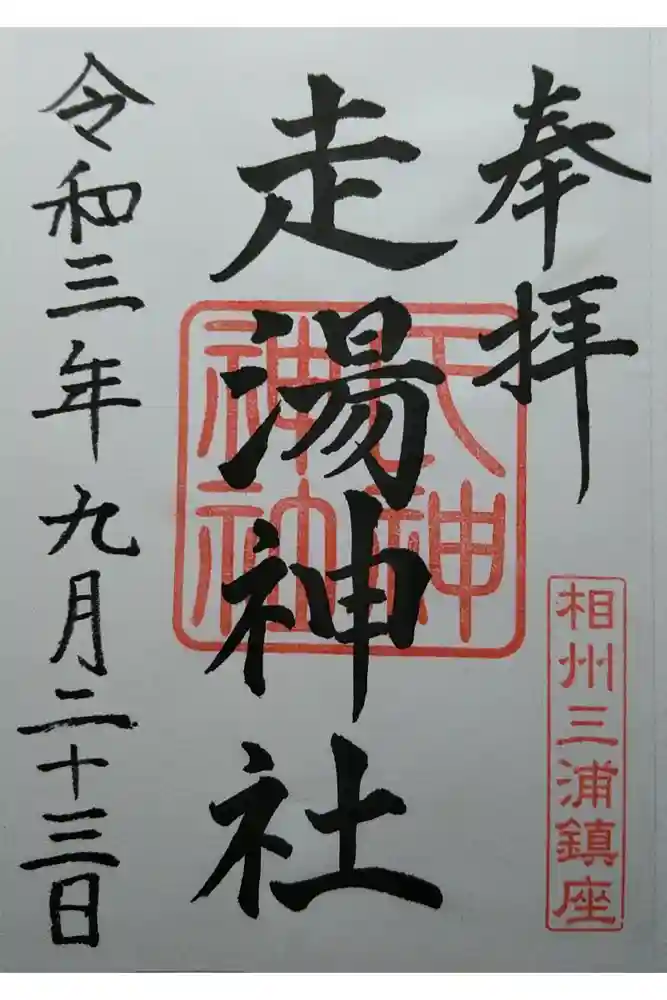 奉拝
相州三浦鎮座
走湯神社
神
神社
令和三年九月二十三日